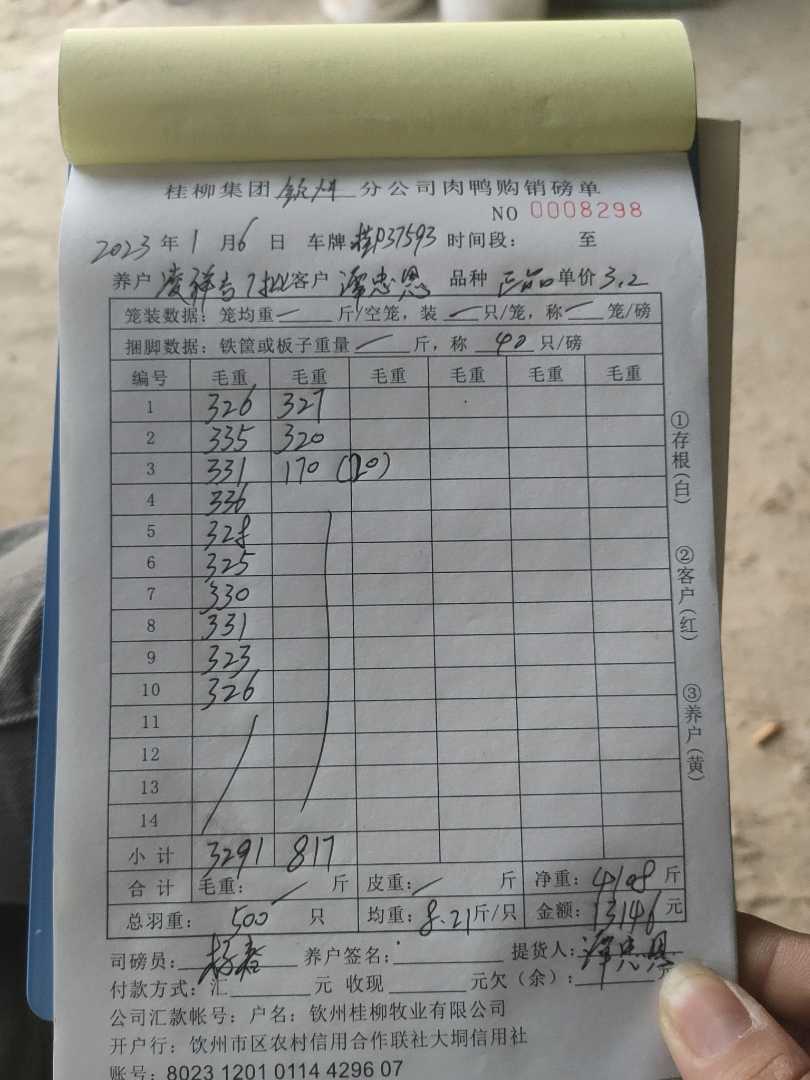 桂柳集团 钦州 分公司肉鸭购销磅单
NO 0008298
2023 年 1 月 6 日 车牌 桂P37593 时间段： 至
养户 凌祥吉 7批 客户 谭忠恩 品种 正品 单价 3.2
笼装数据：笼均重 — 斤/空笼，装 — 只/笼，称 — 笼/磅
捆脚数据：铁筐或板子重量 — 斤，称 40 只/磅
编号 毛重 毛重 毛重 毛重 毛重 毛重
1 326 327
2 335 320
3 331 170 (20)
4 336
5 328
6 325
7 330
8 331
9 323
10 326
11
12
13
14
小计 3291 817
合计 毛重： 斤 皮重： 斤 净重：4108 斤
总羽重： 500 只 均重：8.21 斤/只 金额：13146 元
司磅员： 杨春 养户签名： 提货人：谭忠恩
付款方式：汇 元 收现 元欠（余）： 元
公司汇款帐号：户名：钦州桂柳牧业有限公司
开户行：钦州市区农村信用合作联社大垌信用社
账号：8023 1201 0114 4296 07
①存根(白)
②客户(红)
③养户(黄)